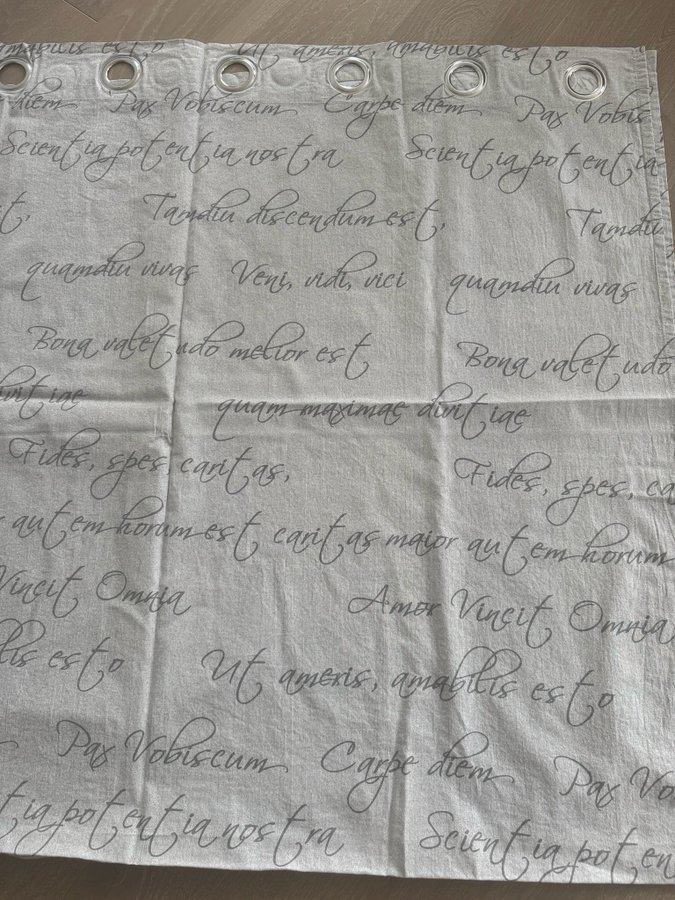 amabilis esto Ut ameris, amabilis esto
diem Pax Vobiscum Carpe diem Pax Vobis
Scientia potentia nostra Scientia potentia
t, Tamdiu discendum est, Tamdiu
quamdiu vivas Veni, vidi, vici quamdiu vivas
Bona valetudo melior est Bona valetudo
divitiae quam maximae divitiae
Fides, spes, caritas, Fides, spes, ca
autem horum est caritas maior autem horum
Vincit Omnia Amor Vincit Omnia
lis esto Ut ameris, amabilis esto
Pax Vobiscum Carpe diem Pax Vo
tia potentia nostra Scientia poten